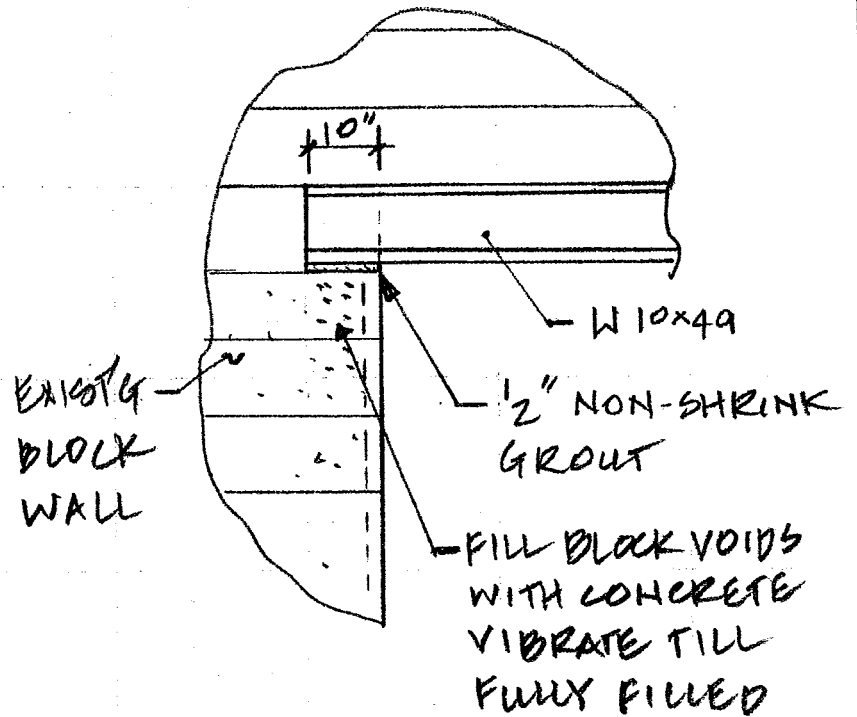 10"
W 10x49
EXIST'G
BLOCK
WALL
1/2" NON-SHRINK
GROUT
FILL BLOCK VOIDS
WITH CONCRETE
VIBRATE TILL
FULLY FILLED